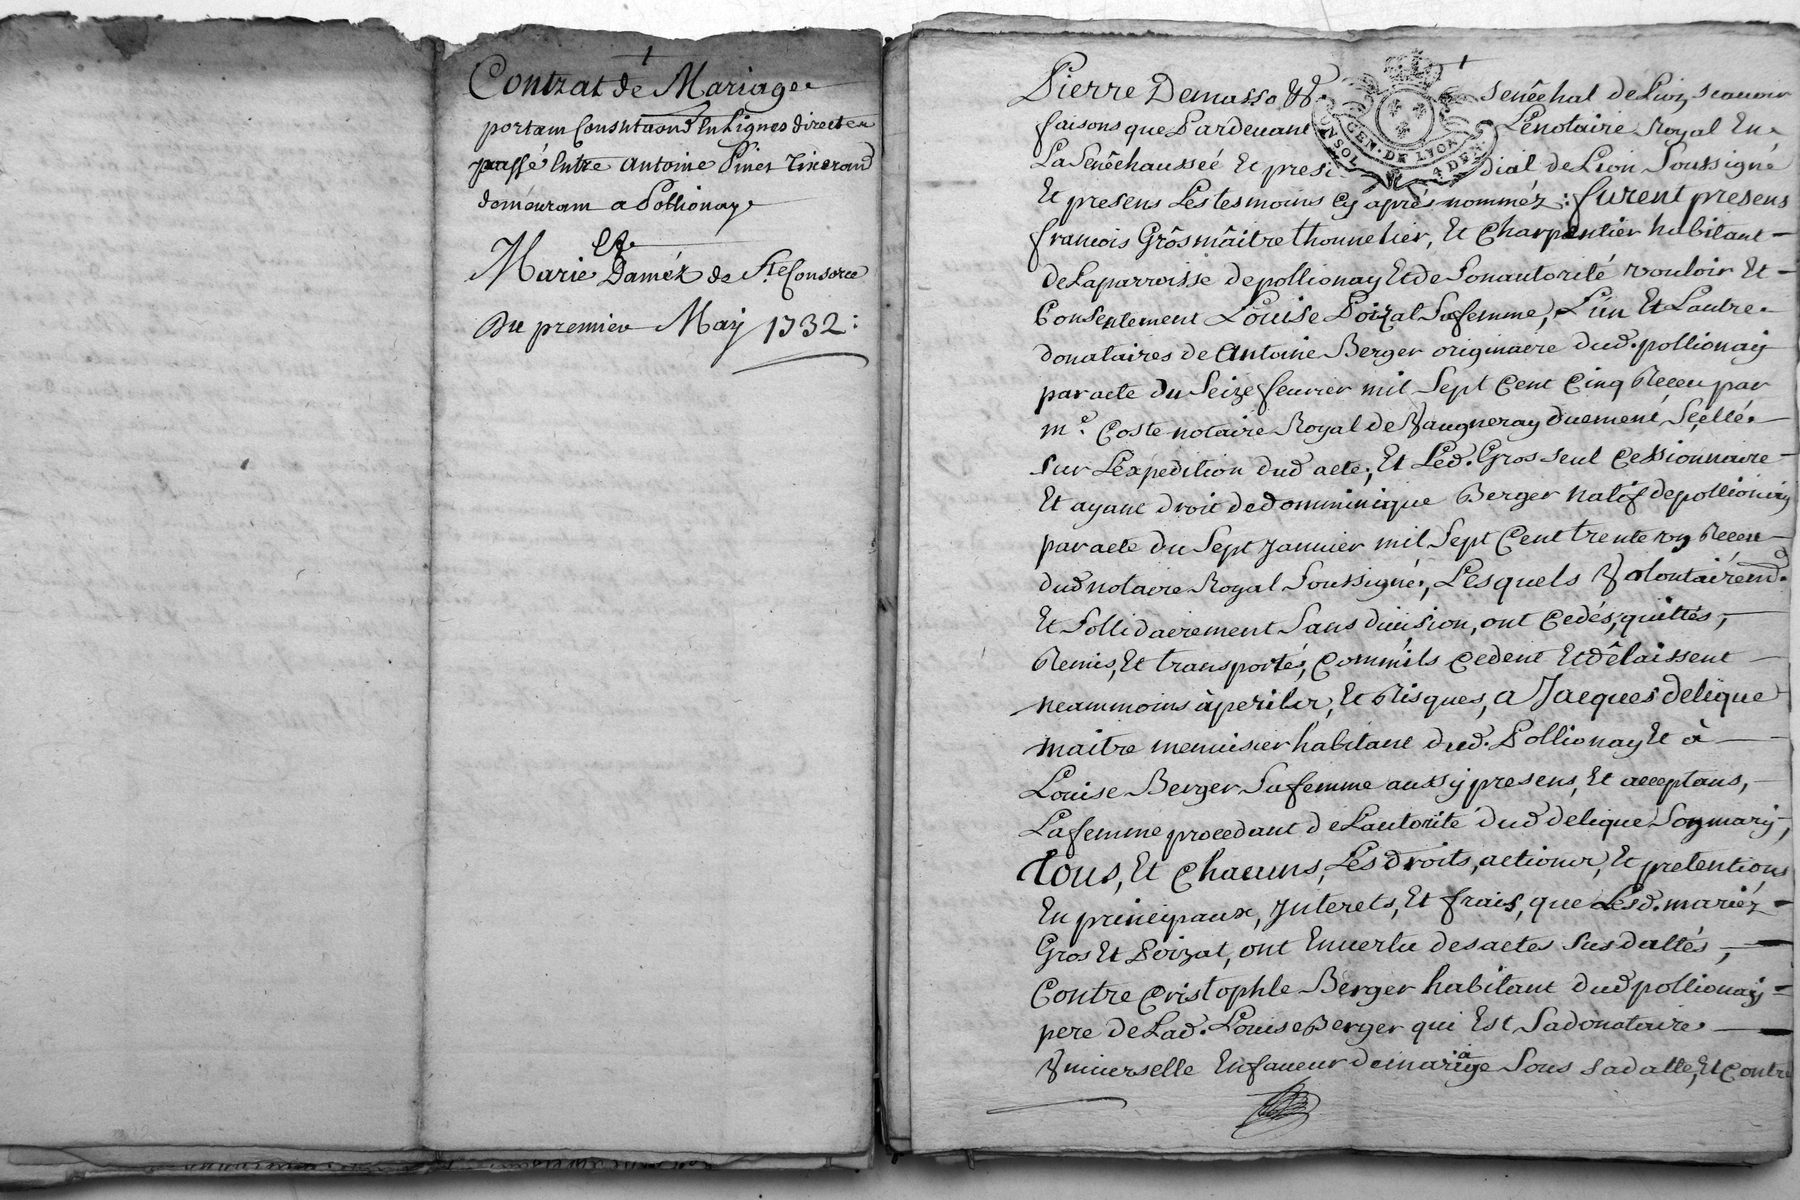 Contrat de Mariage
portam Constitaon En Lignes directe
passé Entre Antoine Pines Tixerand
demeuram a Pollionay
Et
Marie Daméz de Ste Consorce
Du premier May 1732:
Pierre Demasso &c. Senêchal de Lion, scavoir
faisons que Pardevant Lenotaire Royal En
La Senêchausseé Et presidial de Lion Soussigné
Et presens Les tesmoins Cy aprés nommez: furent presens
francois Grôsmâitre thonnelier, Et Charpentier habitant
de Laparroisse depollionay Et de Sonautorité vouloir Et
Consentement Louise Poizat Sa femme, L'un Et Lautre
donataires de Antoine Berger originaire dud. pollionay
par acte du Seize fevrier mil Sept Cent Cinq Receu par
me. Coste notaire Royal de Vaugneray duement Scellé
sur Lexpedition dud acte; Et Led. Gros seul Cessionnaire
Et ayant droit de dominique Berger natif depollionay
par acte du Sept Janvier mil Sept Cent trente un Receu
dud notaire Royal Soussigné; Lesquels Volontairemt.
Et Sollidairement Sans division, ont Cedés, quittés,
Remis, Et transportés, Comm'ils Cedent Et dêlaissent
neammoins à perils, Et Risques, a Jacques delique
maitre menuisier habitant dud. Pollionay Et à
Louise Berger Sa femme aussy presens, Et acceptans,
La femme procedant de Lautorité dud delique Son mary,
tous, Et Chacuns, Les droits, actions, Et pretentions
En principaux, Interets, Et frais, que Lesd. mariéz
Gros Et Poizat, ont En vertu des actes susdattés,
Contre Cristophle Berger habitant dud pollionay
pere de Lad. Louise Berger qui Est Sa donataire
Universelle En faveur de mariage Sous sa datte, Et Contre
GEN. DE LYON
4 DEN